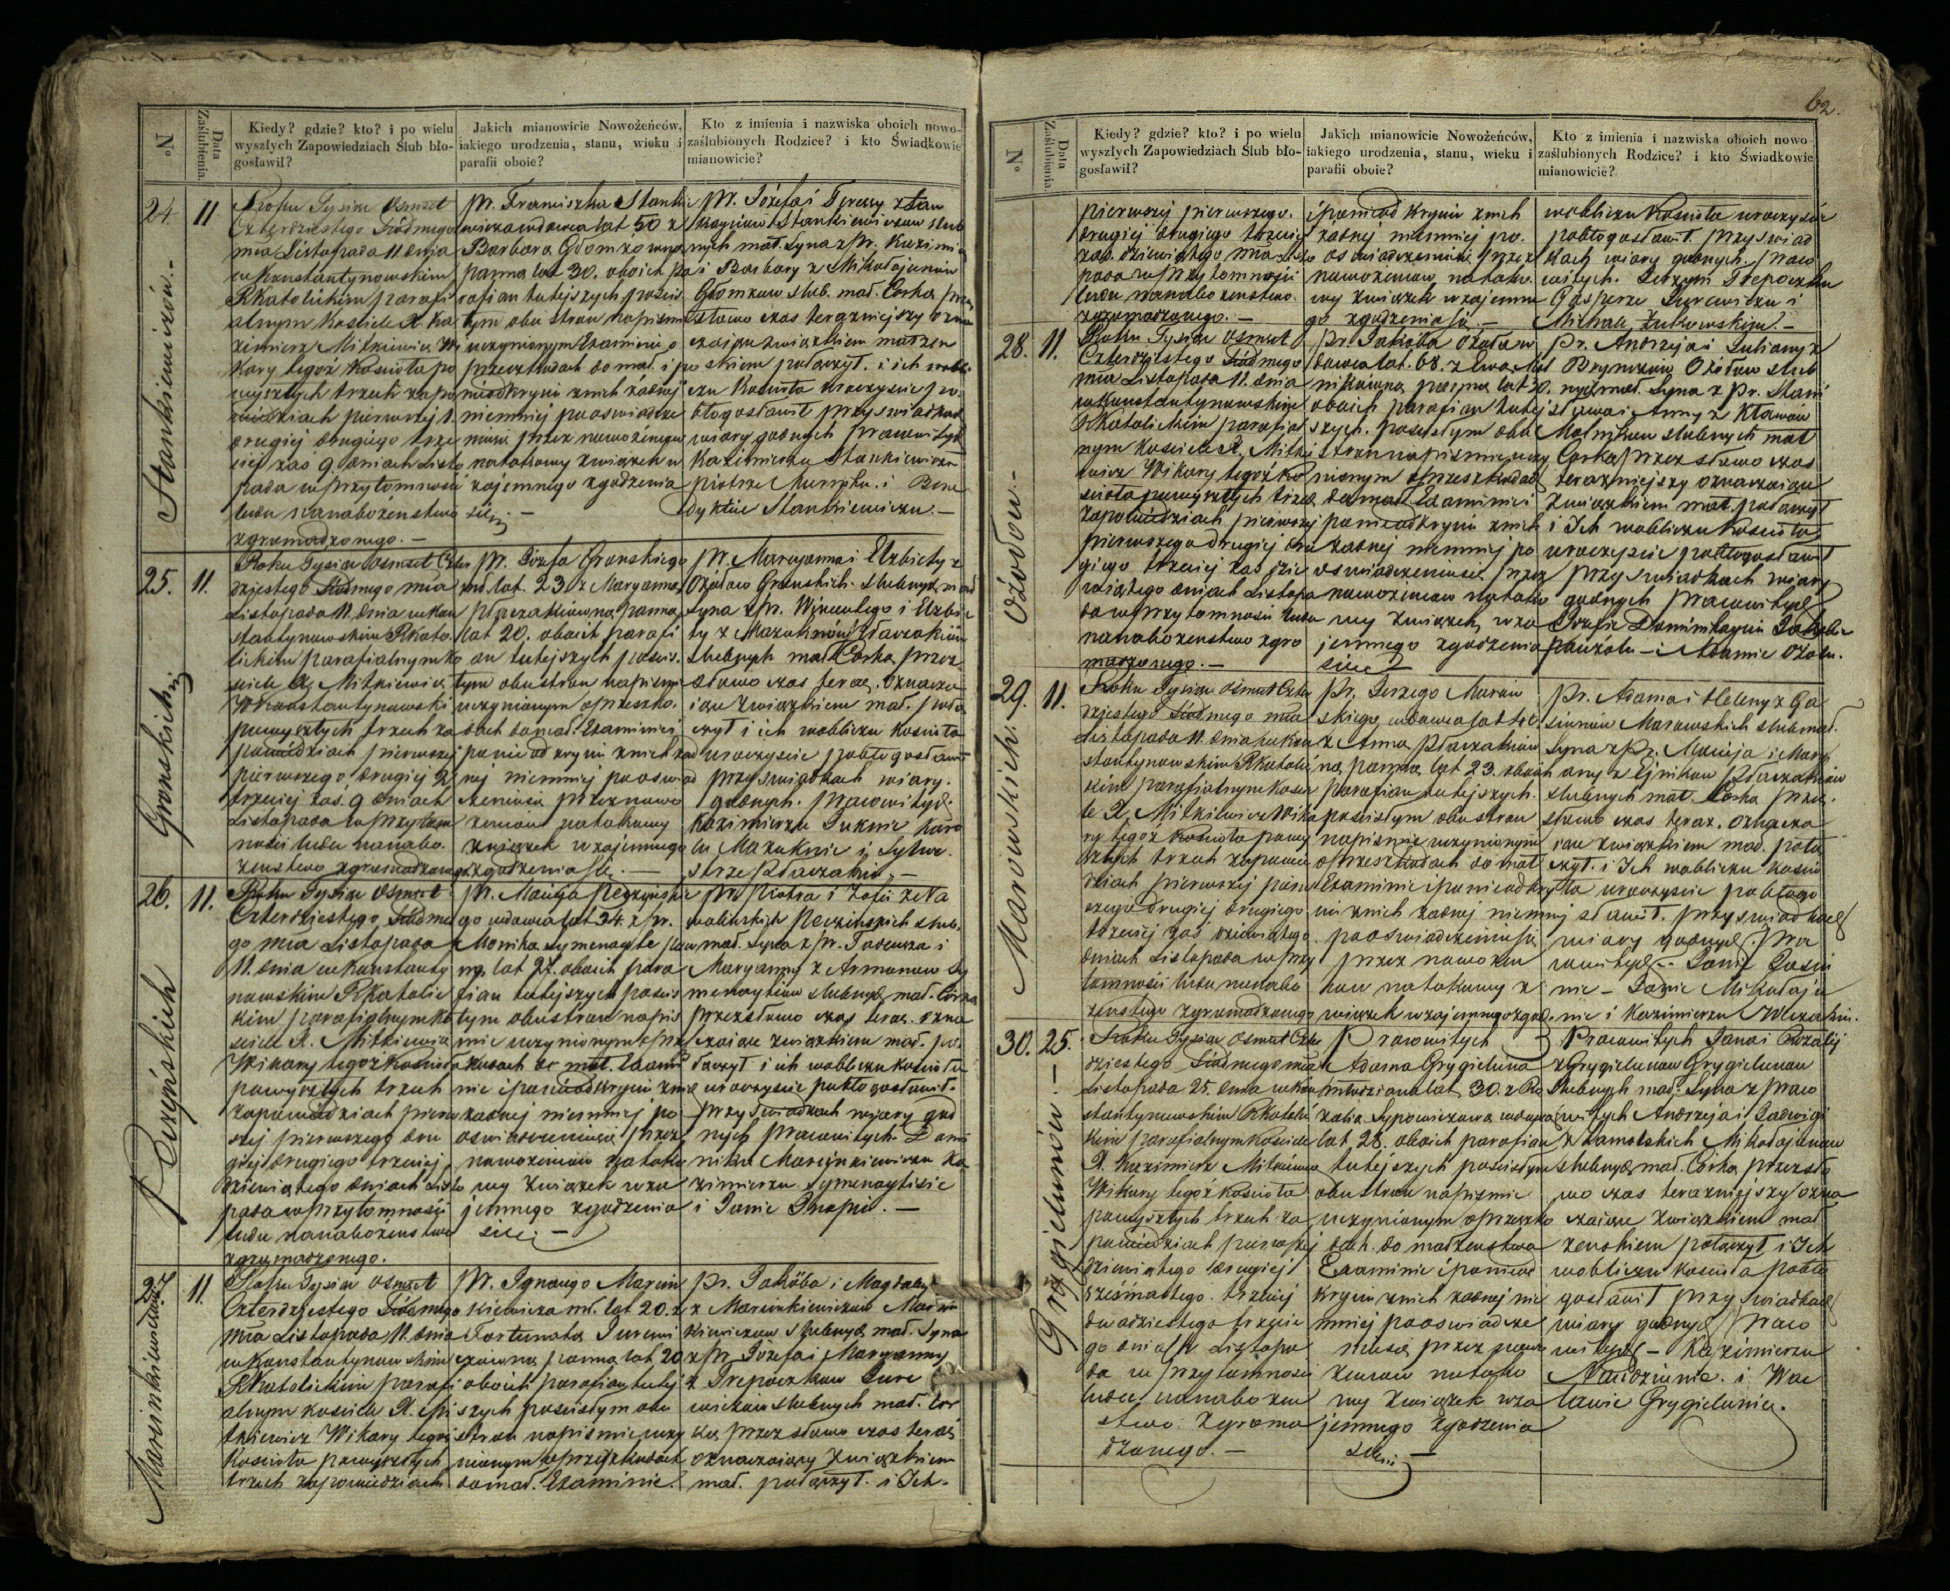 62.
N°
Data Zaślubienia.
Kiedy? gdzie? kto? i po wielu
wyszłych Zapowiedziach Ślub bło-
gosławił?
Jakich mianowicie Nowożeńców,
iakiego urodzenia, stanu, wieku i
parafii oboie?
Kto z imienia i nazwiska oboich nowo-
zaślubionych Rodzice? i kto Świadkowie
mianowicie?
24
11
Stankiewiczów.-
Roku Tysiąc Osmset
Czterdziestego Siódmego
mca Listopada 11 dnia
w Konstantynowskim
RKatolickim parafi
alnym Kościele X. Ka
zimierz Mitkiewicz Wi
kary tegoż Kościoła po
wyszłych trzech zapo
wiedziach pierwszej 1.
drugiej drugiego trze
ciej zaś 9. dniach Listo
pada w przytomności
ludu na nabożenstwo
zgromadzonego. —
Pr. Franciszka Stank
iewicza wdowca lat 50 z
Barbarą Głomzowną
panną lat 30. oboich pa
rafian tutejszych pościs
tym obu stron na piśmie
uczynionym Examinie o
przeszkodach do mał. i po
nieodkryciu z nich żadnej
niemniej po oswiadcze
niusię przez nowożeńców
natakowy związek w
zajemnego zgodzenia
się. —
Pr. Józefa i Teressy z Ław
rynowiczów Stankiewiczow ślub
nych mał. Syna z Pr. Kazimie
i Barbary z Mikołajunów
Głomzow ślub. mał. Corką przez
słowo czas teraznieyszy ozna
czające związkiem małżen
skiem połączył. i ich w obli
czu Kościoła uroczyscie po
błogosławił przy swiadkach
wiary godnych Pracowitych
Kazimierzu Stankiewiczu
Piotrze Murnyku. i Bene
dykcie Stankiewiczu. —
25.
11.
Gronskich
Roku Tysiąc Osmset Czter
dziestego Siódmego mca
Listopada 11. dnia w Kon
stantynowskim RKato.
lickim parafialnym Ko
sciele X. Mitkiewicz
W. Konstantynowski
po wyszłych trzech za
powiedziach pierwszej
pierwszego drugiej 2
trzeciej zaś. 9 dniach
Listopada w przytom
ności ludu na nabo
żenstwo zgromadzonego
Pr. Józefa Gronskiego
mł. lat. 23 z Maryanną
Płaczakiówną panną
lat 20. oboich parafi
an tutejszych pościs.
tym obu stron na piśmie
uczynionym o przeszko.
dach do mał. Examinie i
po nieodkryciu z nich żad
nej niemniej po oswiad
czeniusię przez nowo
żeńcow natakowy
związek wzajemnego
zgodzenia się. —
Pr. Maryanna i Elżbiety z
Ożołow Gronskich. slubnych mał
Syna z Pr. Wincentego i Elżbie
ty z Mazuknów Płaczakiów
slubnych mał. Corką przez
słowo czas teraz. oznacza
iące związkiem mał. połą
czył i ich w obliczu Kościoła
uroczyscie pobłogosławił
przy swiadkach wiary.
godnych. Pracowitych.
Kazimierzu Juknie Karo
lu Mazuknie i Sylwe.
strze Płaczaku. —
26.
11.
Peczyńskich
Roku Tysiąc Osmset
Czterdziestego Siódme
go mca Listopada
11. dnia w Konstanty
nowskim RKatolic
kim parafialnym Ko
sciele X. Mitkiewicz
Wikary tegoż Kościoła
po wyszłych trzech
zapowiedziach pierw
szej pierwszego dru
giej drugiego trzeciej
dziewiątego dniach Listo
pada w przytomności
ludu na nabożeństwo
zgromadzonego.
Pr. Macieja Peczyńskie
go wdowca lat 34. z Pr.
Moniką Symenayte pan
ną. lat 27. oboich para
fian tutejszych pościs
tym obu stron na piś
mie uczynionym o prze
szkodach do mał. Exami
nie i po nieodkryciu z nich
żadnej niemniej po
oswiadczeniusię przez
nowożeńców natako
wy związek wza
jemnego zgodzenia
się. —
Pr. Piotra i Zofii z Na
walinskich Peczińskich ślub.
mał. Syna z Pr. Tadeusza i
Maryanny z Armanow Sy
menaytiow slubnych mał. Corką
przez słowo czas teraz. ozna
czające związkiem mał. po.
łączył i ich w obliczu kościoła
uroczyscie pobłogosławił.
przy swiadkach wiary god
nych Pracowitych. Domi
niku Marcinkiewiczu Ka
zimierzu Symenaytisie
i Janie Snapu. —
27.
11.
Marcinkiewiczów
Roku Tysiąc Osmset
Czterdziestego Siódmego
mca Listopada 11. dnia
w Konstantynowskim
RKatolickim parafi
alnym Kościele X. Mi
tkiewicz Wikary tegoż
Kościoła po wyszłych
trzech zapowiedziach
Pr. Ignacego Marcin
kiewicza mł. lat 20. z
Fortunatą Jurewi
czówną panną lat 20
oboich parafian tutej
szych pościsłym obu
stron na piśmie uczy
nionym o przeszkodach
do mał. Examinie.
Pr. Jakóba i Magdaleny
z Marcinkiewiczow Marcin
kiewiczow slubnych mał. Syna
z Pr. Józefa i Maryanny
z Trepoczkow Jure
wiczow slubnych mał. Cor
ką przez słowo czas teraz
oznaczaiący związkiem
mał. połączył. i Ich-
pierwszej pierwszego.
drugiej drugiego trzeciej
zaś. dziewiątego mca Listo
pada w przytomności
ludu na nabożenstwo.
zgromadzonego. —
i po nieodkryciu z nich
żadnej niemniej po.
oswiadczeniusię przez
nowożencow natako.
wy związek wzajemne
go zgodzenia się. —
w obliczu Kościoła uroczyscie
pobłogosławił. przy swiad
kach wiary godnych. Praco
witych. Jerzym Trepoczku
Gasperze Jurewiczu i
Michale Żukowskim. —
28.
11.
Ożołow. —
Roku Tysiąc Osmset
Czterdziestego Siódmego
mca Listopada 11. dnia
w Konstantynowskim
RKatolickim parafial
nym Kosciele X. Mitki
ewicz Wikary tegoż Ko
scioła po wyszłych trzech
zapowiedziach pierwszej
pierwszego drugiej dru
giego trzeciej zaś dzie
wiątego dniach Listopa
da w przytomności ludu
na nabożenstwo zgro
madzonego. —
Pr. Jakóba Ożoła w
dowca lat. 68. z Ewą Mel
nikówną panną lat 30.
oboich parafian tutej
szych. pościsłym obu
stron na piśmie uczy
nionym o przeszkodach
do mał. Examinie i
po nieodkryciu z nich
żadnej niemniej po
oswiadczeniusię przez
nowożeńcow natako
wy związek, wza
jemnego zgodzenia
się —
Pr. Andrzeja i Julianny z
Brynzow Ożołow slub
nych mał. Syna z Pr. Stani
sława i Anny z Kławow
Melnikow slubnych mał
Corką przez słowo czas
teraznieyszy oznaczaiące
związkiem mał. połączył
i Ich w obliczu Kościoła
uroczyscie pobłogosławił
przy swiadkach wiary
godnych Pracowitych
Józefie Dominikazym Jakóbie
Pauzolu — i Adamie Ożołu.
29.
11.
Marowskich. —
Roku Tysiąc Osmset Czter
dziestego Siódmego mca
Listopada 11. dnia w Kon
stantynowskim RKatolic
kim parafialnym Koscie
le X. Mitkiewicz Wika
ry tegoż Kościoła po wy
szłych trzech zapowie
dziach pierwszej pierw
szego drugiej drugiego.
trzeciej zaś dziewiątego.
dniach Listopada w przy
tomności ludu na nabo
żenstwo zgromadzonego
Pr. Jerzego Maraw
skiego, wdowca lat
z Anną Płaczakiów
ną panną lat 23. oboich
parafian tutejszych.
pościsłym obu stron
na piśmie uczynionym
o przeszkodach do mał
Examinie i po nieodkry
ciu z nich żadnej niemniej
po oswiadczeniusię
przez nowożeń
cow natakowy z
wiązek wzajemnego zgo.
Pr. Adama i Heleny z Ga
siunow Marawskich slub mał.
Syna z Pr. Macieja i Mary
anny z Ejnikow Płaczakiow
slubnych mał. Corką przez.
słowo czas teraz. oznacza
iące związkiem mał. połą
czył. i Ich w obliczu Kościo
ła uroczyscie pobłogo
sławił. przy swiadkach
wiary godnych. Pra
cowitych. Janie
Janie Mikołaju
nie i Kazimierzu
30.
25.
Grygielunów. —
Roku Tysiąc Osmset Czter
dziestego Siódmego mca
Listopada 25. dnia w Kon
stantynowskim RKatolic
kim parafialnym Kosciele
X. Kazimierz Mitkiewicz
Wikary tegoż Kościoła
po wyszłych trzech za
powiedziach pierwszej
dziewiątego drugiej
szesnastego. trzeciej
dwadziestego trzecie
go dniach Listopa
da w przytomności
ludu na nabożen
stwo zgroma
dzonego. —
Pracowitych
Adama Grygieluna
młodziana lat 30. z Ro
zalią Sypowiczową wdową
lat 28. oboich parafian
tutejszych pościsłym
obu stron na piśmie
uczynionym o przeszko
dach. do małżenstwa
Examinie i po nieod
kryciu z nich żadnej nie
mniej po oswiadcze
niusię przez nowo
żeńcow natako
wy związek wza
jemnego zgodzenia
się —
Pracowitych Jana i Rozalij
z Grygielunow Grygielunow
slubnych mał. Syna z Praco
witych Andrzeja i Jadwigi
z Zamolskich Mikołajunow
slubnych mał. Córką przez sło
wo czas teraznieyszy ozna
czaiące związkiem mał
żenskiem połączył i Ich
w obliczu Kościoła pobło
gosławił przy swiadkach
wiary godnych Praco
witych — Kazimierzu
Naudziunie. i Wac
ławie Grygielunie.